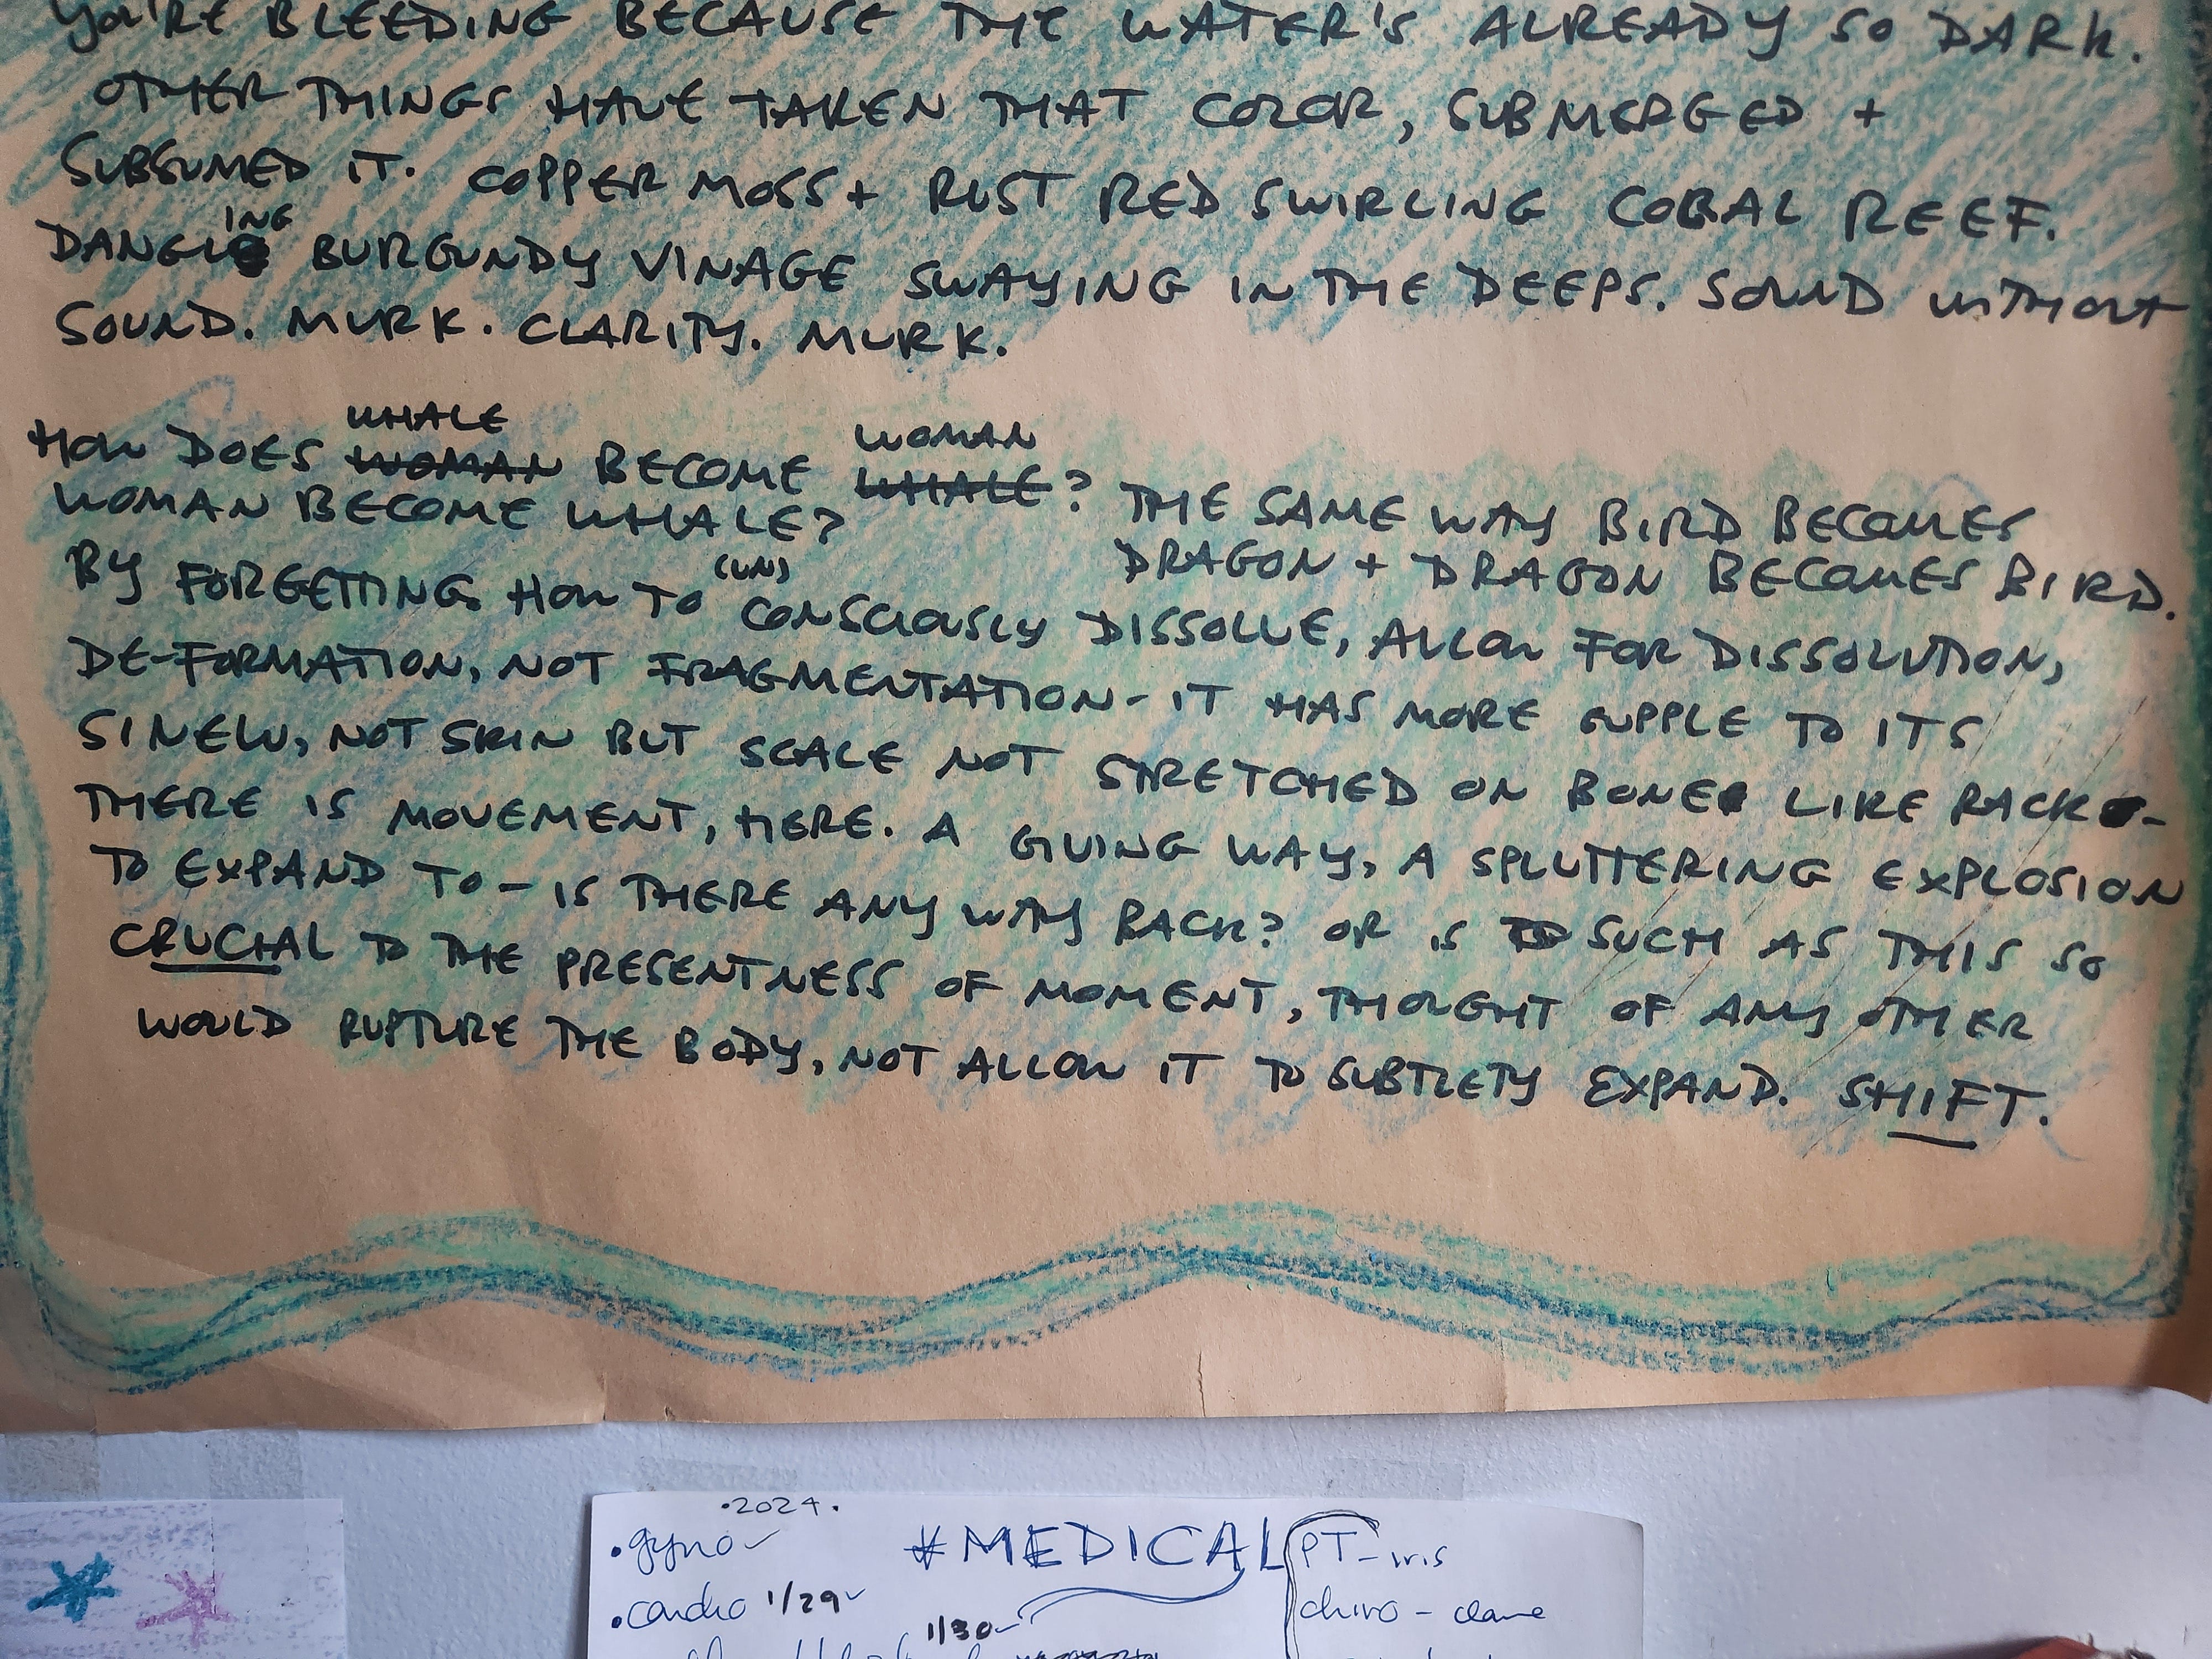 YOU'RE BLEEDING BECAUSE THE WATER'S ALREADY SO DARK.
OTHER THINGS HAVE TAKEN THAT COLOR, SUBMERGED +
SUBSUMED IT. COPPER MOSS + RUST RED SWIRLING CORAL REEF.
DANGLING BURGUNDY VINAGE SWAYING IN THE DEEPS. SOUND WITHOUT
SOUND. MURK. CLARITY. MURK.
HOW DOES WHALE WOMAN BECOME WOMAN WHALE? THE SAME WAY BIRD BECOMES
WOMAN BECOME WHALE? DRAGON + DRAGON BECOMES BIRD.
BY FORGETTING HOW TO (UN) CONSCIOUSLY DISSOLVE, ALLOW FOR DISSOLUTION,
DE-FORMATION, NOT FRAGMENTATION - IT HAS MORE SUPPLE TO ITS
SINEW, NOT SKIN BUT SCALE NOT STRETCHED ON BONE LIKE RACK -
THERE IS MOVEMENT, HERE. A GIVING WAY, A SPLUTTERING EXPLOSION
TO EXPAND TO - IS THERE ANY WAY BACK? OR IS SUCH AS THIS SO
CRUCIAL TO THE PRESENTNESS OF MOMENT, THOUGHT OF ANY OTHER
WOULD RUPTURE THE BODY, NOT ALLOW IT TO SUBTLETY EXPAND. SHIFT.
•2024.
•gyno #MEDICAL PT - iris
•cardio 1/29 chiro -
1/30